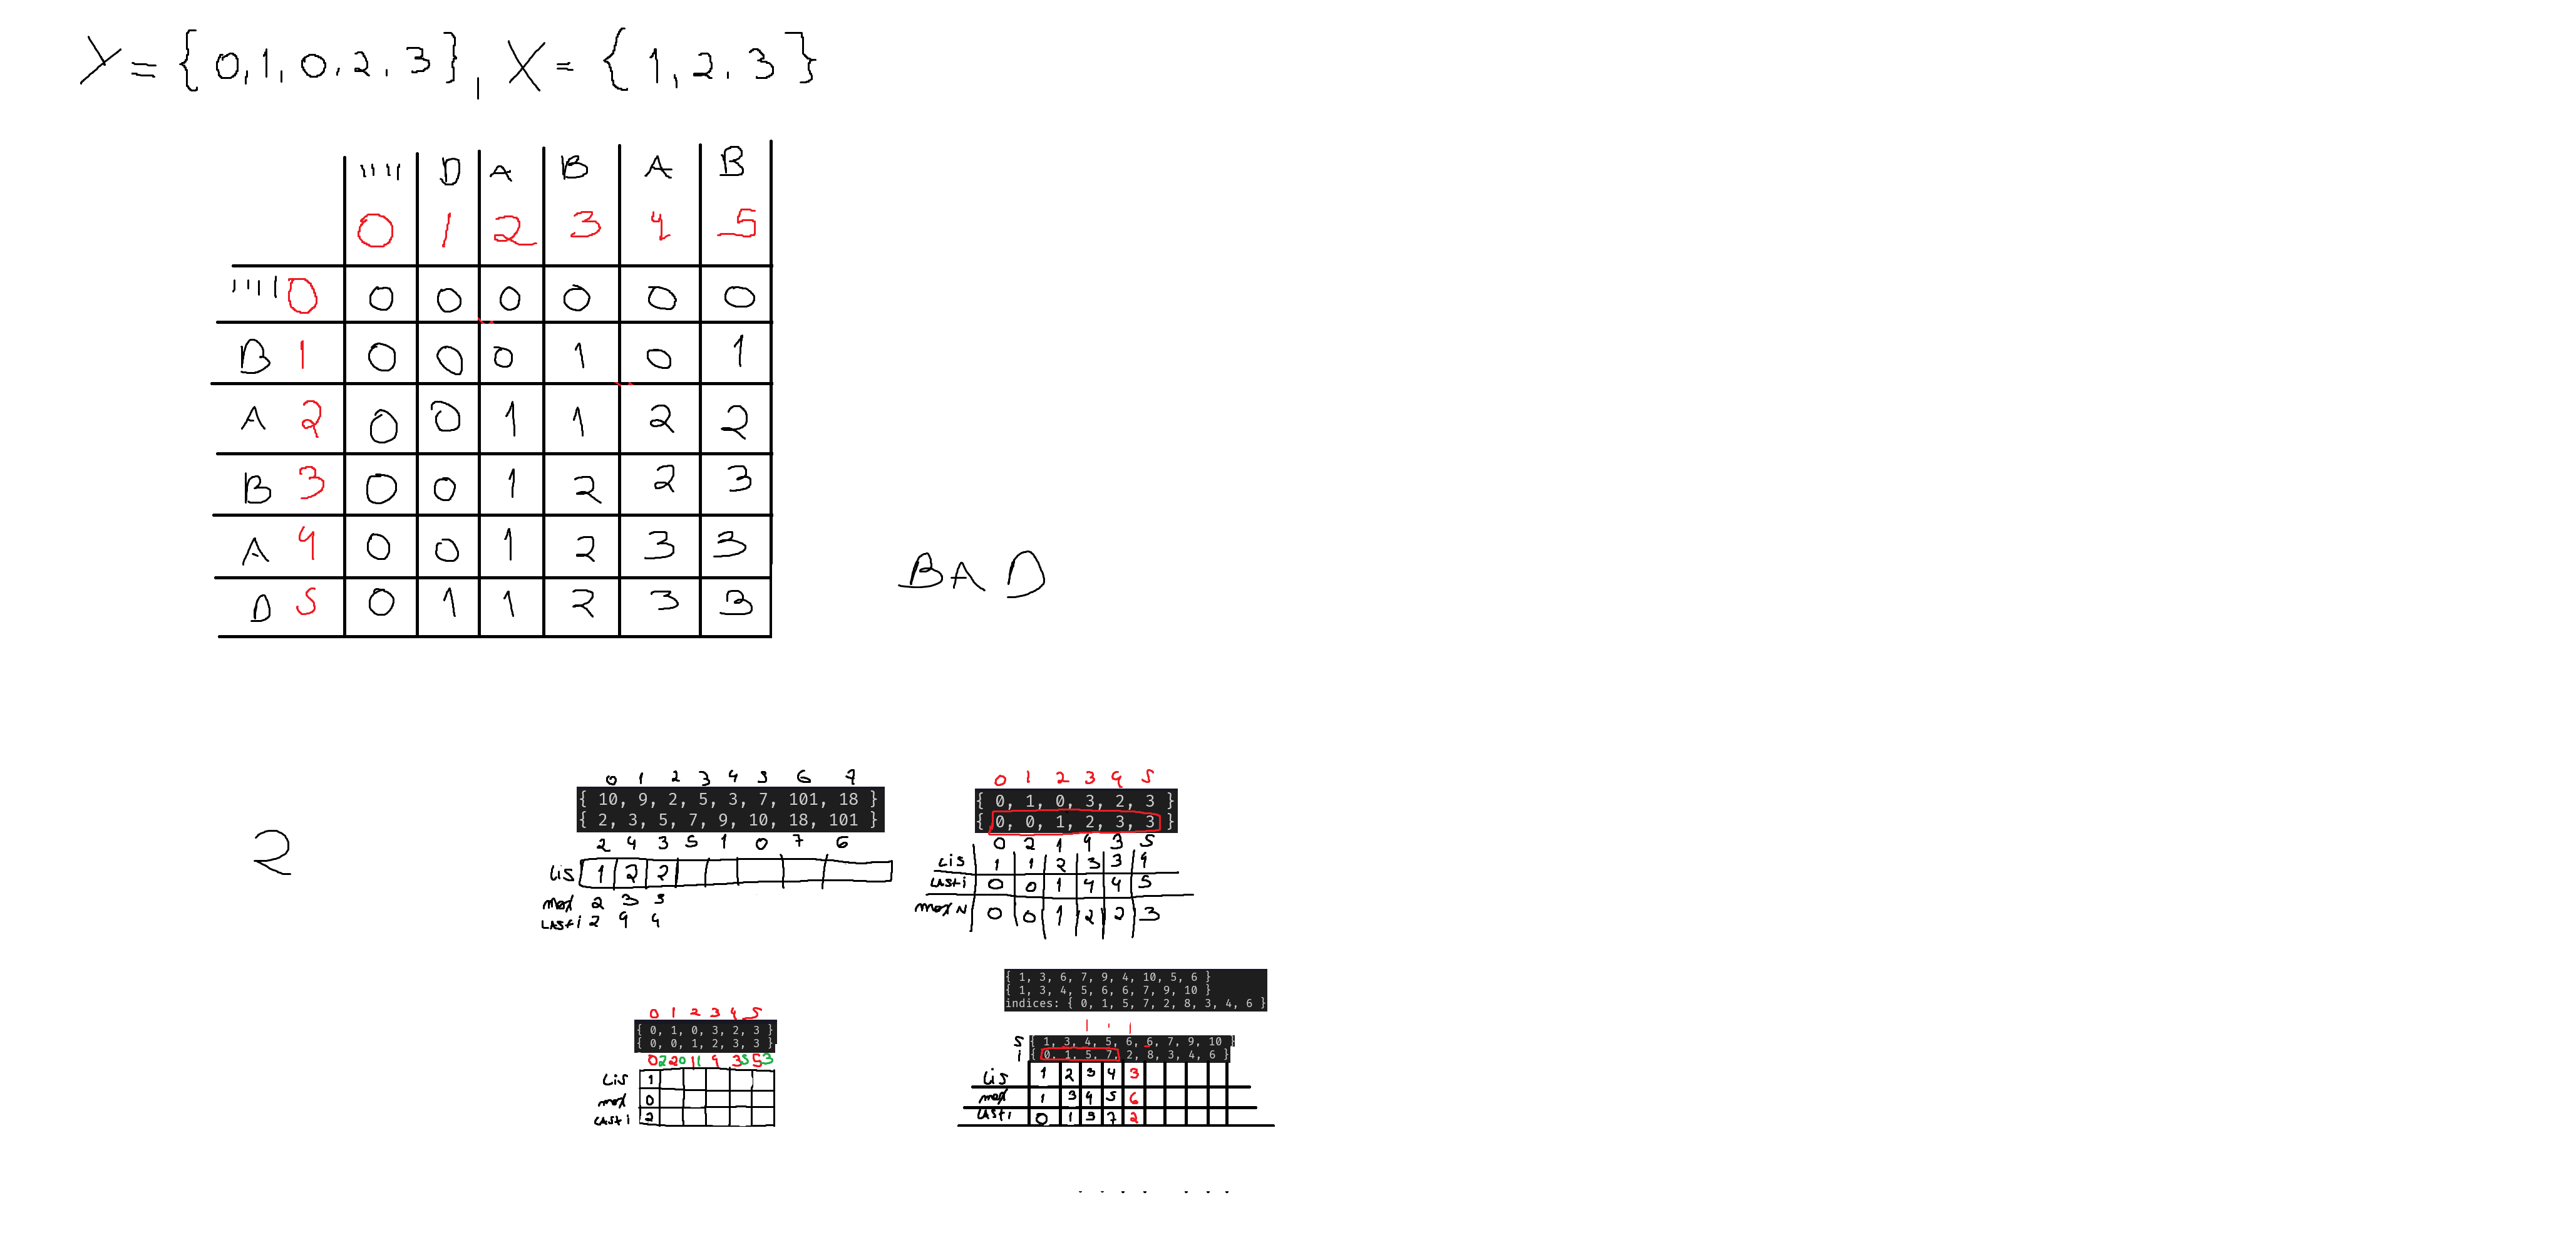 Y = { 0, 1, 0, 2, 3 }, X = { 1, 2, 3 }
"" D A B A B
0 1 2 3 4 5
"" 0 0 0 0 0 0 0
B 1 0 0 0 1 0 1
A 2 0 0 1 1 2 2
B 3 0 0 1 2 2 3
A 4 0 0 1 2 3 3
D 5 0 1 1 2 3 3
BAD
2
0 1 2 3 4 5 6 7
{ 10, 9, 2, 5, 3, 7, 101, 18 }
{ 2, 3, 5, 7, 9, 10, 18, 101 }
2 4 3 5 1 0 7 6
Lis 1 2 2
max 2 3 5
Lasti 2 4 4
0 1 2 3 4 5
{ 0, 1, 0, 3, 2, 3 }
{ 0, 0, 1, 2, 3, 3 }
0 2 1 4 3 5
Lis 1 1 2 3 3 4
Lasti 0 0 1 4 4 5
max N 0 0 1 2 2 3
0 1 2 3 4 5
{ 0, 1, 0, 3, 2, 3 }
{ 0, 0, 1, 2, 3, 3 }
02 20 11 4 35 53
Lis 1
max 0
Lasti 2
{ 1, 3, 6, 7, 9, 4, 10, 5, 6 }
{ 1, 3, 4, 5, 6, 6, 7, 9, 10 }
indices: { 0, 1, 5, 7, 2, 8, 3, 4, 6 }
S { 1, 3, 4, 5, 6, 6, 7, 9, 10 }
i { 0, 1, 5, 7, 2, 8, 3, 4, 6 }
Lis 1 2 3 4 3
max 1 3 4 5 6
Lasti 0 1 5 7 2